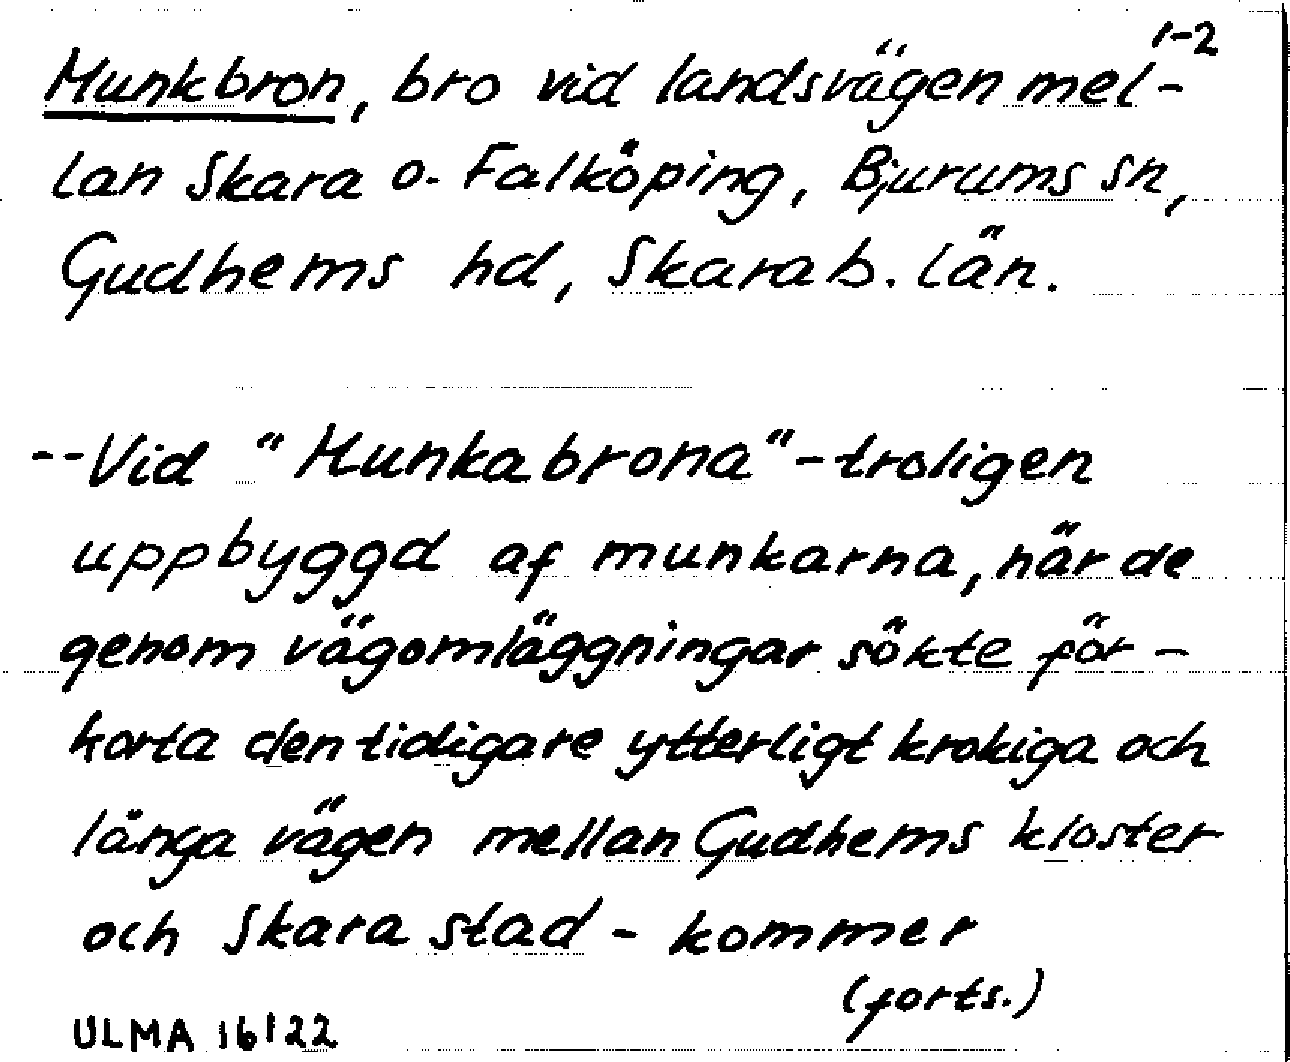 1-2
Munkbron, bro vid landsvägen mel-
lan Skara o. Falköping, Bjurums sn,
Gudhems hd, Skarab. län.
--Vid "Munkabrona" - troligen
uppbyggd af munkarna, när de
genom vägomläggningar sökte för-
korta den tidigare ytterligt krokiga och
långa vägen mellan Gudhems kloster
och Skara stad - kommer
(forts.)
ULMA 16122